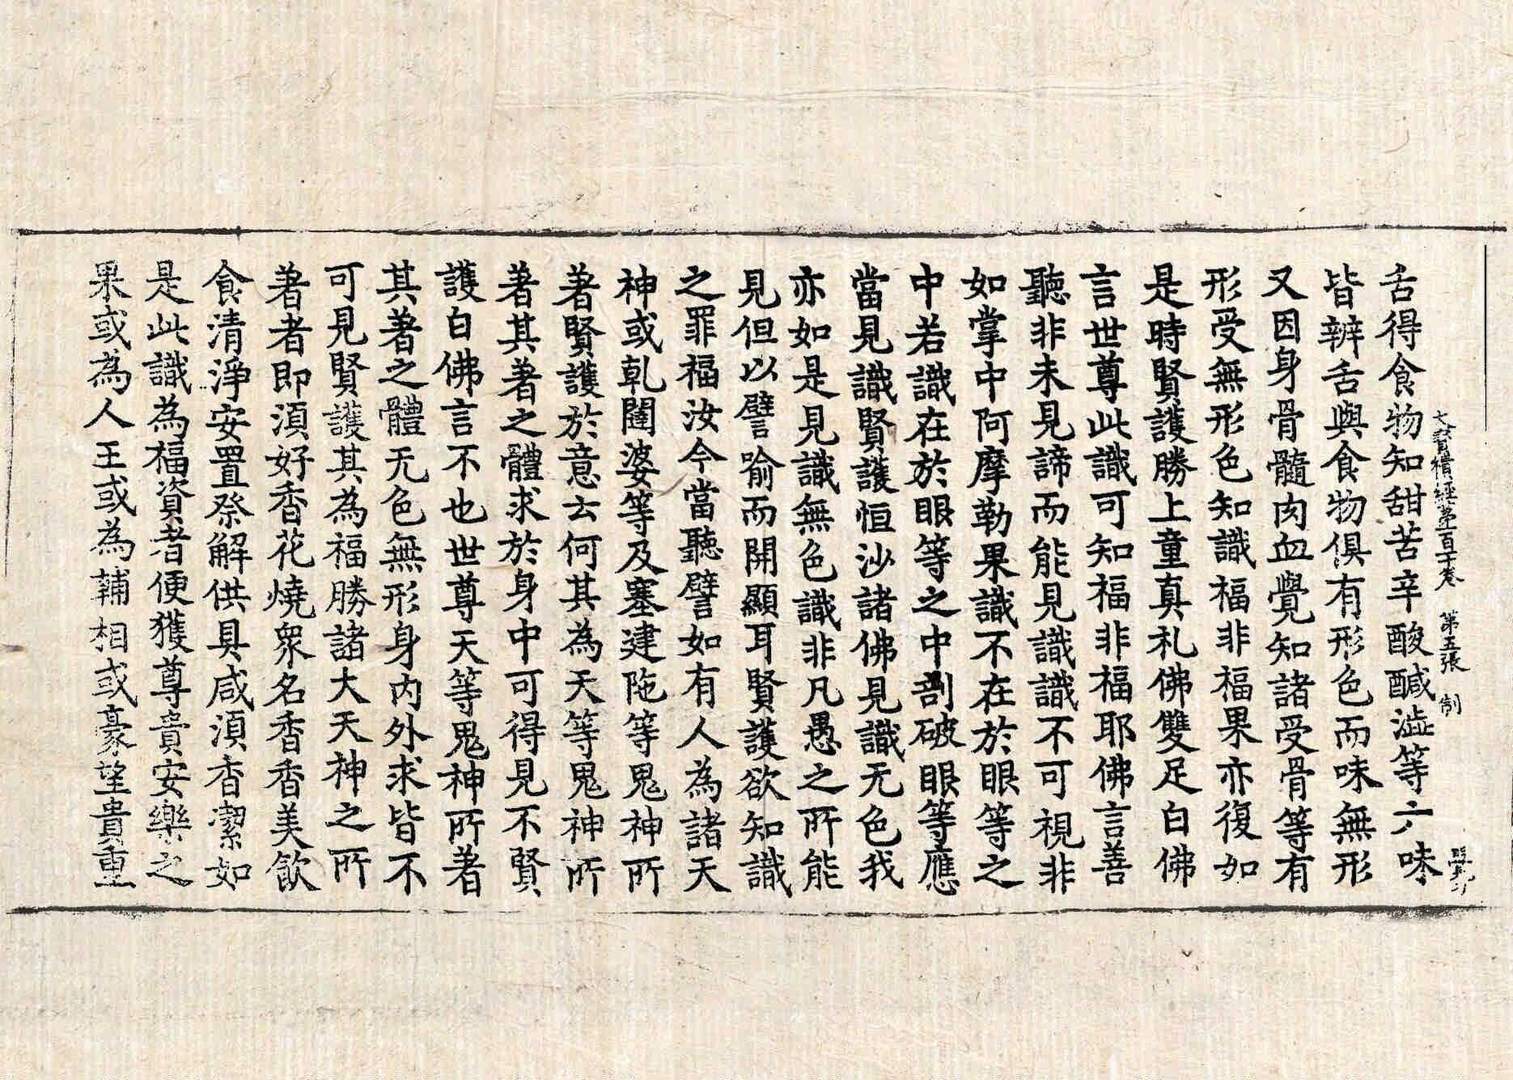 大寶積經第一百十卷　第五張　制
舌得食物知甜苦辛酸醎澁等六味
皆辨舌與食物俱有形色而味無形
又因身骨髓肉血覺知諸受骨等有
形受無形色知識福非福果亦復如
是時賢護勝上童真礼佛雙足白佛
言世尊此識可知福非福耶佛言善
聽非未見諦而能見識識不可視非
如掌中阿摩勒果識不在於眼等之
中若識在於眼等之中剖破眼等應
當見識賢護恒沙諸佛見識无色我
亦如是見識無色識非凡愚之所能
見但以譬喻而開顯耳賢護欲知識
之罪福汝今當聽譬如有人為諸天
神或乹闥婆等及塞建陁等鬼神所
著賢護於意云何其為天等鬼神所
著其著之體求於身中可得見不賢
護白佛言不也世尊天等鬼神所著
其著之體无色無形身內外求皆不
可見賢護其為福勝諸大天神之所
著者即湏好香花燒衆名香香美飲
食清淨安置祭解供具咸湏香潔如
是此識為福資者便獲尊貴安樂之
果或為人王或為輔相或豪望貴重